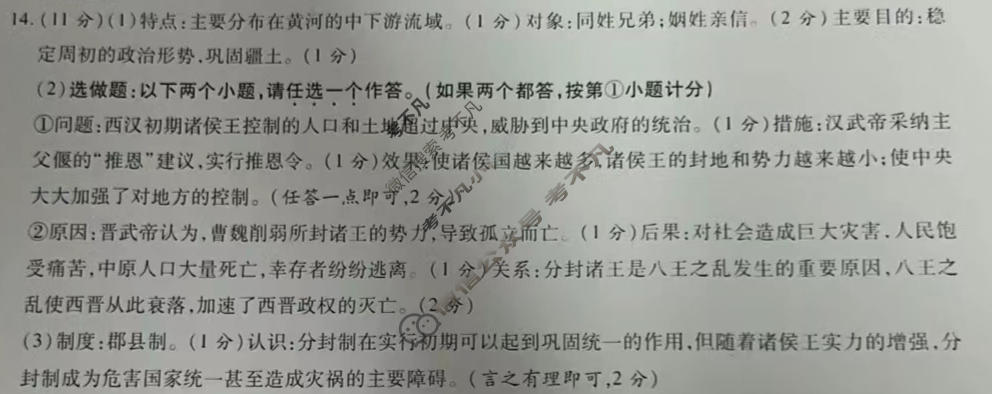 14.(11 分)(1)特点:主要分布在黄河的中下游流域。(1 分)对象:同姓兄弟;姻姓亲信。(2 分)主要目的:稳
定周初的政治形势,巩固疆土。(1 分)
(2)选做题:以下两个小题,请任选一个作答。(如果两个都答,按第①小题计分)
①问题:西汉初期诸侯王控制的人口和土地超过中央,威胁到中央政府的统治。(1 分)措施:汉武帝采纳主
父偃的“推恩”建议,实行推恩令。(1 分)效果:使诸侯国越来越多,诸侯王的封地和势力越来越小;使中央
大大加强了对地方的控制。(任答一点即可,2 分)
②原因:晋武帝认为,曹魏削弱所封诸王的势力,导致孤立而亡。(1 分)后果:对社会造成巨大灾害,人民饱
受痛苦,中原人口大量死亡,幸存者纷纷逃离。(1 分)关系:分封诸王是八王之乱发生的重要原因,八王之
乱使西晋从此衰落,加速了西晋政权的灭亡。(2 分)
(3)制度:郡县制。(1 分)认识:分封制在实行初期可以起到巩固统一的作用,但随着诸侯王实力的增强,分
封制成为危害国家统一甚至造成灾祸的主要障碍。(言之有理即可,2 分)